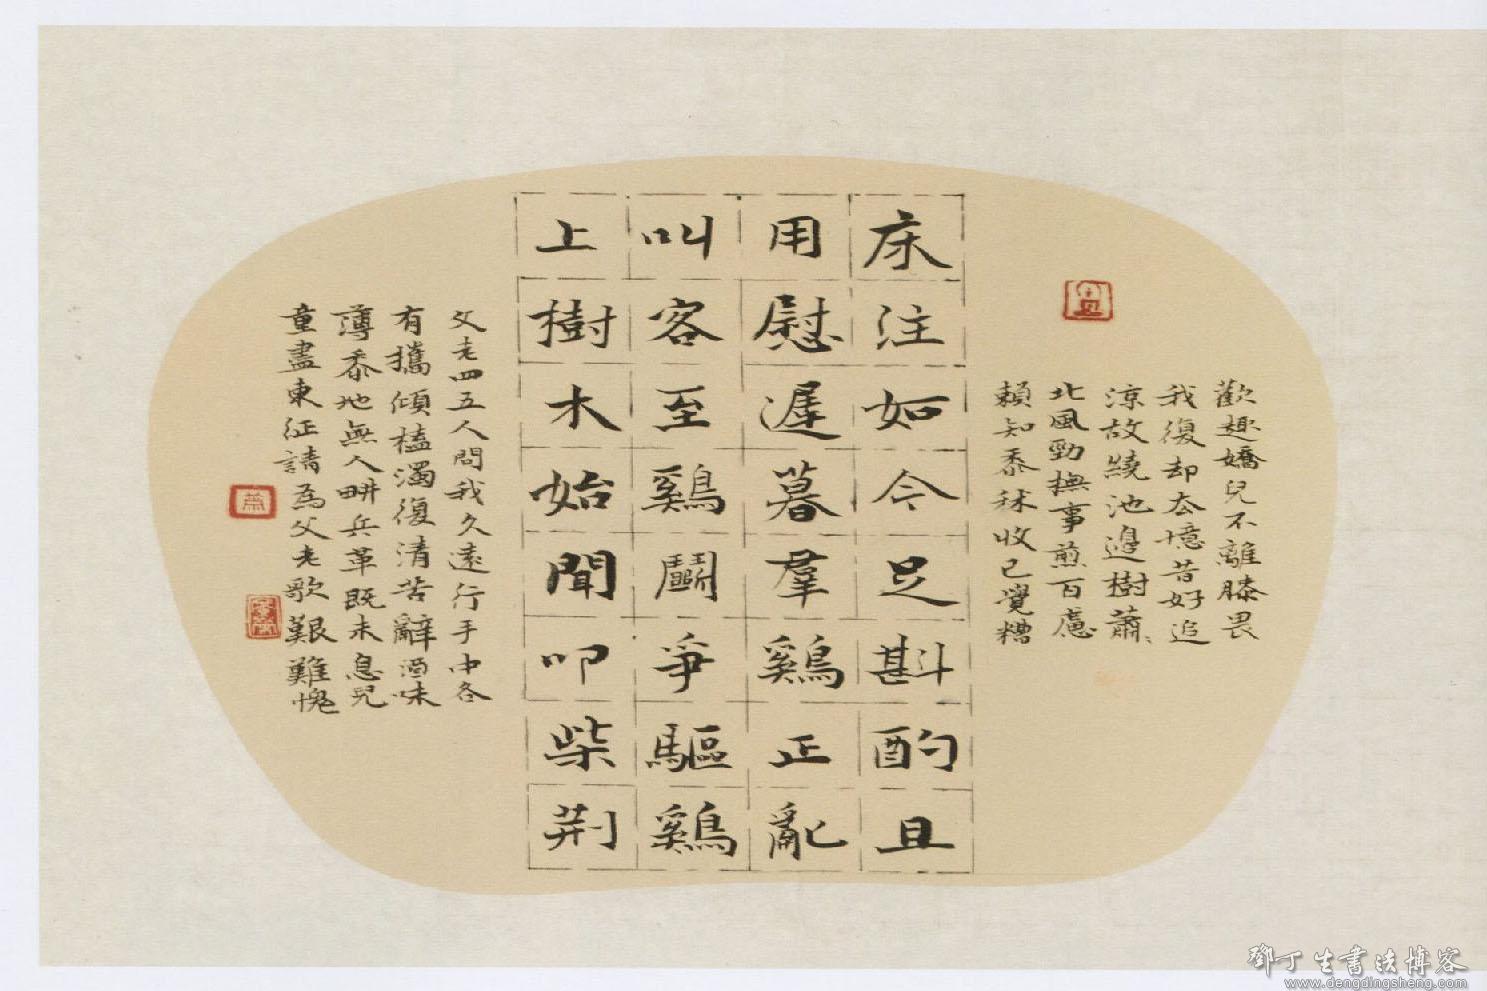 歡趣嬌兒不離膝畏
我復却去憶昔好追
涼故繞池邊樹蕭、
北風勁撫事煎百慮
賴知黍秫收已覺糟
床注如今足斟酌且
用慰遲暮羣鷄正亂
叫客至鷄鬭爭驅鷄
上樹木始聞叩柴荆
父老四五人問我久遠行手中各
有攜傾榼濁復清苦辭酒味
薄黍地無人畊兵革既未息兒
童盡東征請為父老歌艱難愧
鄧丁生書法博客
www.dengdingsheng.com